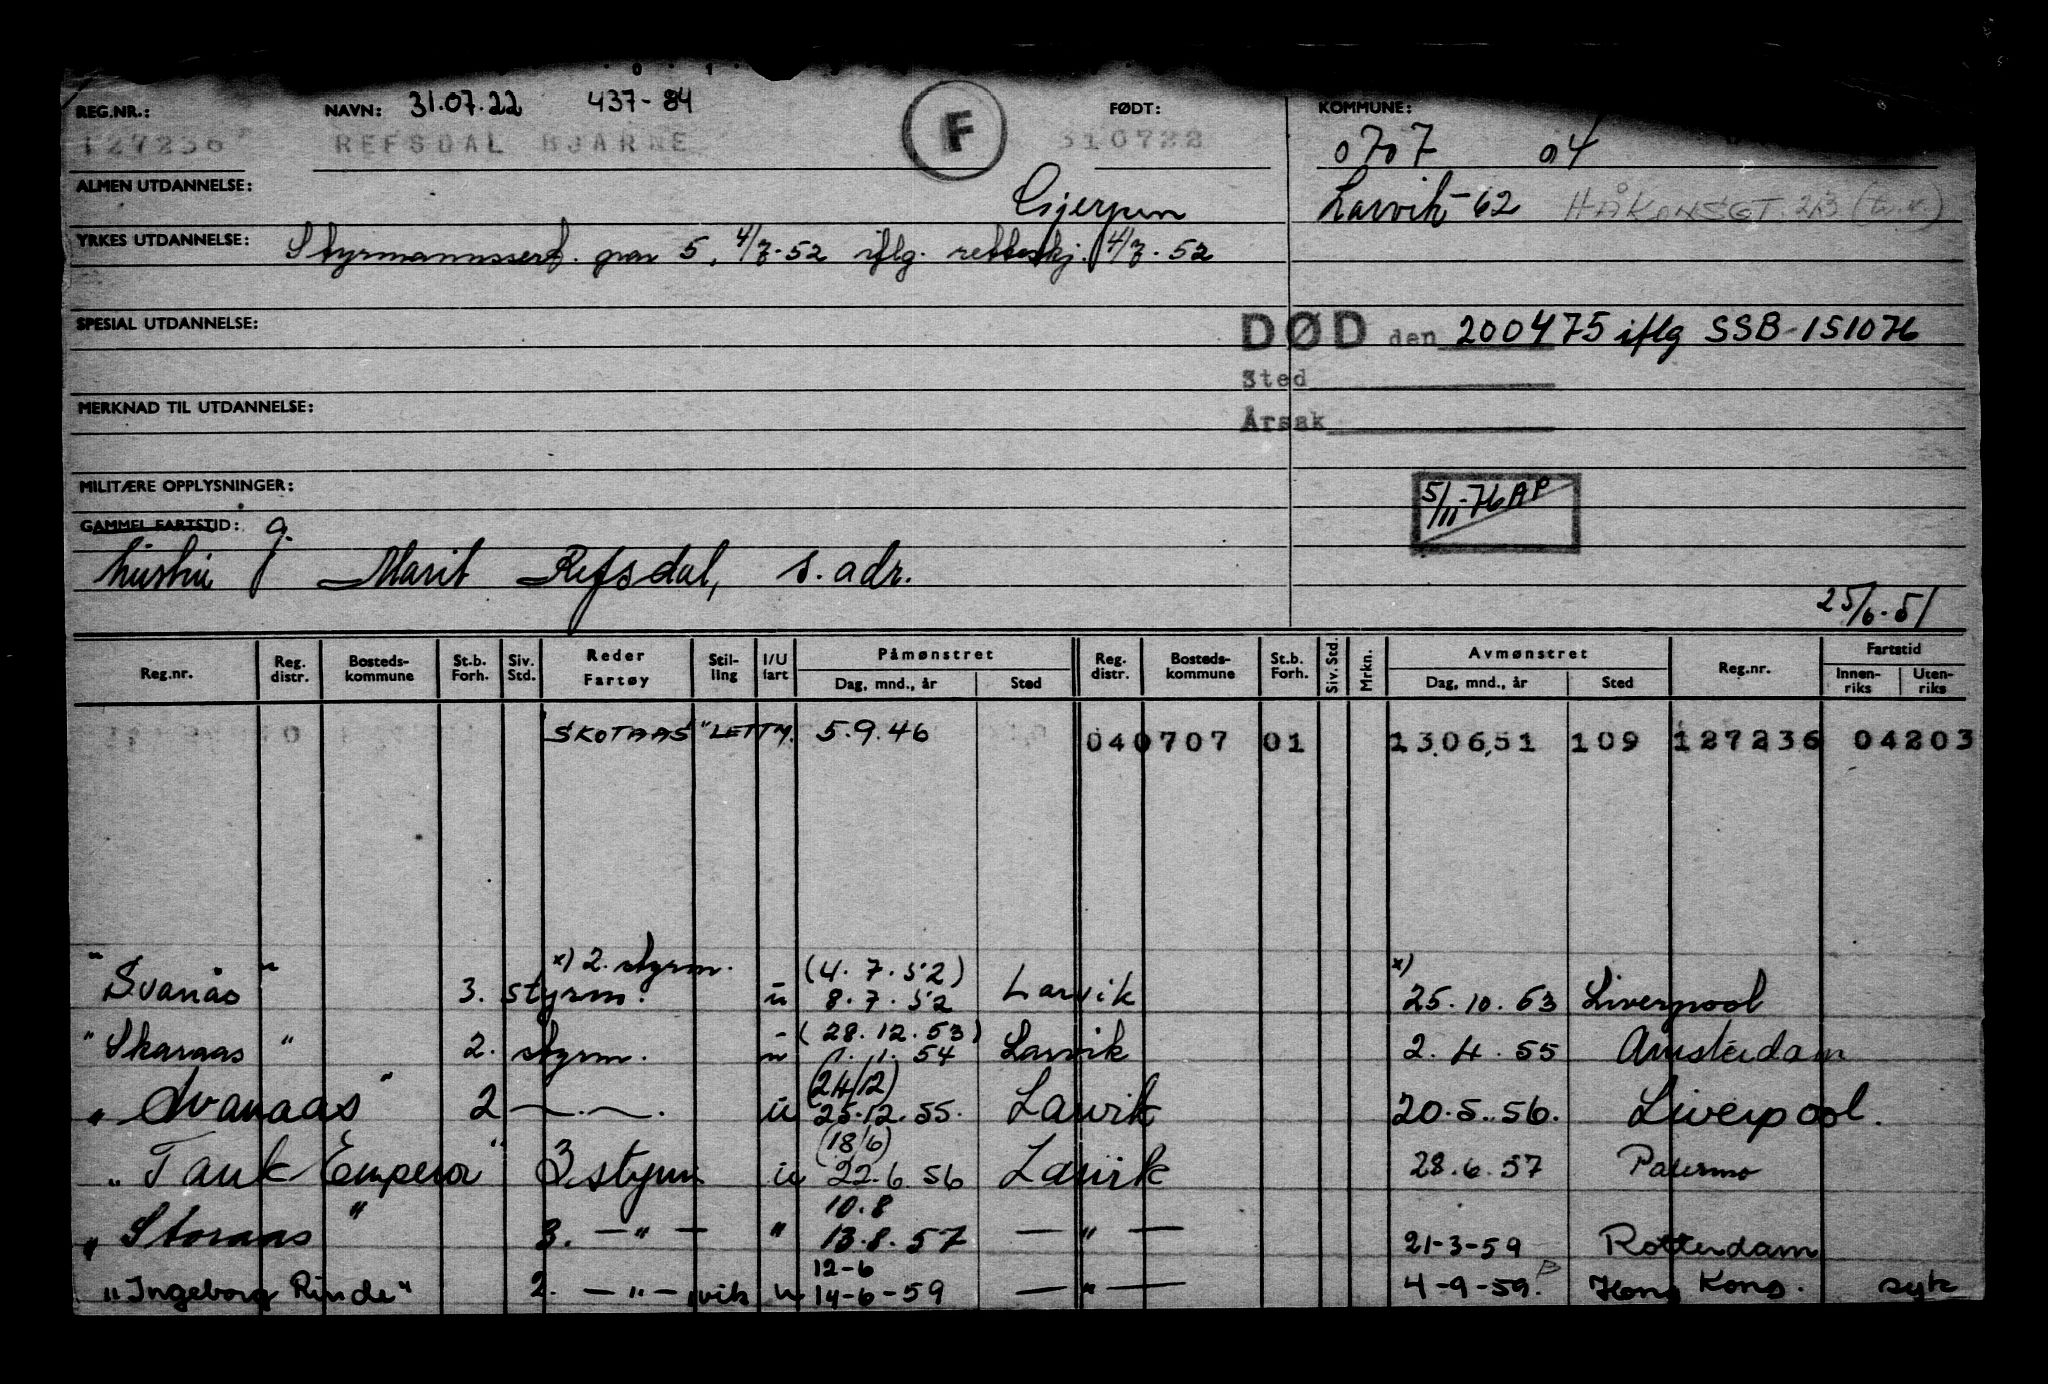 REG.NR.: NAVN: 31.07.22 437-84 F FØDT: KOMMUNE:
127236 REFSDAL BJARNE 310722 0707 04
ALMEN UTDANNELSE: Gjerpen Larvik-62 HÅKONSGT 23
YRKES UTDANNELSE: Styrmannssert. grav 5, 4/7-52 iflg. retteskj. 4/7-52
SPESIAL UTDANNELSE: DØD den 200475 iflg SSB-151076
Sted
MERKNAD TIL UTDANNELSE: Årsak
MILITÆRE OPPLYSNINGER: 5/11-76 AP
GAMMEL FARTSTID: g.
hustru Marit Refsdal, s. adr.
25/6-51
Reg.nr. Reg. distr. Bosteds-kommune St.b. Forh. Siv. Std. Reder Fartøy Stil-ling I/U fart Påmønstret Dag, mnd., år Sted Reg. distr. Bosteds-kommune St.b. Forh. Siv. Std. Mrkn. Avmønstret Dag, mnd., år Sted Reg.nr. Fartstid Innen-riks Uten-riks
"SKOTAAS" LETTM. 5.9.46 040707 01 130651 109 127236 04203
x) 2. styrm. (4.7.52) x)
"Svanås" 3. styrm. u 8.7.52 Larvik 25.10.53 Liverpool
(28.12.53)
"Skaraas" 2. styrm. u 1.1.54 Larvik 2.4.55 Amsterdam
(24/12)
"Svanaas" 2 —.—. u 25.12.55. Larvik 20.5.56. Liverpool.
(18/6)
"Tank Emperor" 3 styrm u 22.6.56 Larvik 28.6.57 Palermo
10.8
"Storaas" 3. — " — " 13.8.57 — " — 21-3-59 Rotterdam
12-6
"Ingeborg Rinde" 2. — " — vik u 14-6-59 — " — 4-9-59. Hong Kong. syk